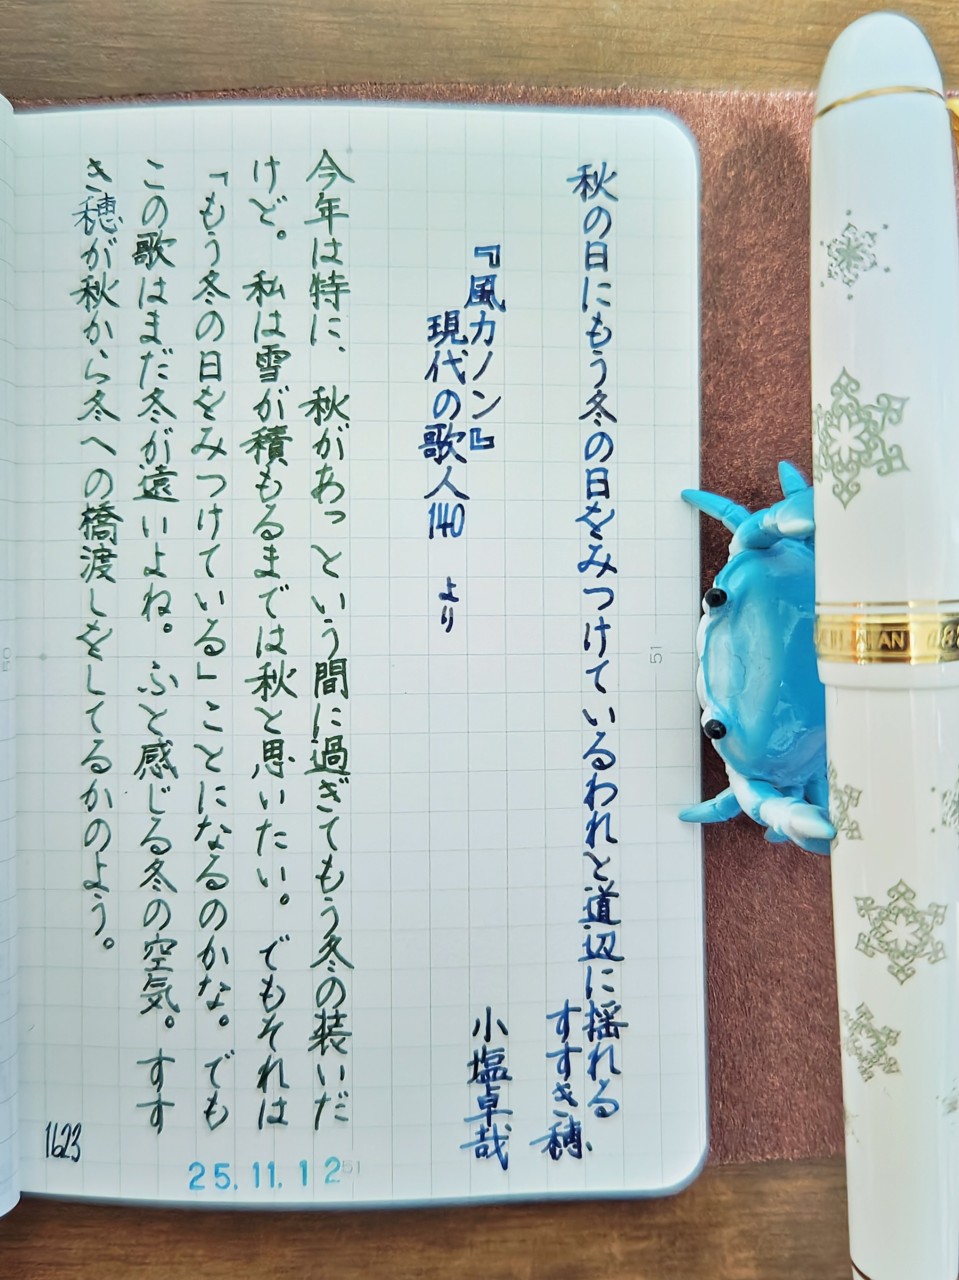 秋の日にもう冬の日をみつけているわれと道辺に揺れる
すすき穂
『風カノン』
現代の歌人140 より
小塩卓哉
今年は特に、秋があっという間に過ぎてもう冬の装いだ
けど。私は雪が積もるまでは秋と思いたい。でもそれは
「もう冬の日をみつけている」ことになるのかな。でも
この歌はまだ冬が遠いよね。ふと感じる冬の空気。すす
き穂が秋から冬への橋渡しをしてるかのよう。
1623
25.11.12
51
51
50